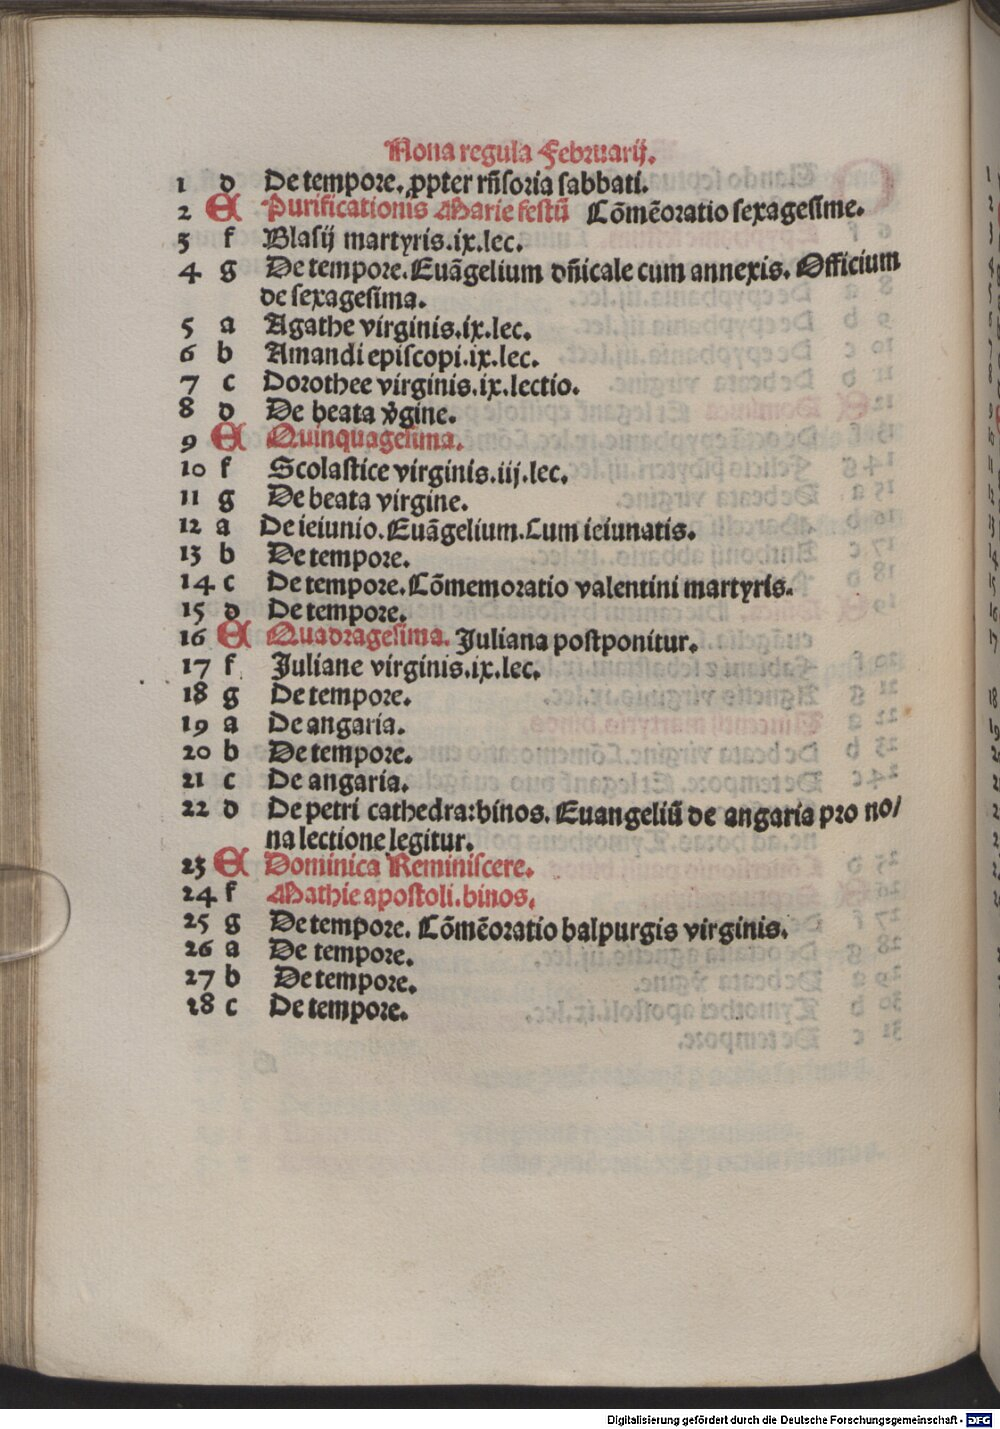 Nona regula Februarij.
1 d De tempore. ꝓpter rñsoria sabbati.
2 E Purificationis Marie festū Cōmēoratio sexagesime.
3 f Blasij martyris.ix.lec.
4 g De tempore. Euāgelium dñicale cum annexis. Officium
de sexagesima.
5 a Agathe virginis.ix.lec.
6 b Amandi episcopi.ix.lec.
7 c Dorothee virginis.ix.lectio.
8 d De beata v̄gine.
9 E Quinquagesima.
10 f Scolastice virginis.iij.lec.
11 g De beata virgine.
12 a De ieiunio. Euāgelium. Cum ieiunatis.
13 b De tempore.
14 c De tempore. Cōmemoratio valentini martyris.
15 d De tempore.
16 E Quadragesima. Juliana postponitur.
17 f Juliane virginis.ix.lec.
18 g De tempore.
19 a De angaria.
20 b De tempore.
21 c De angaria.
22 d De petri cathedra:binos. Euangeliū de angaria pro no/
na lectione legitur.
23 E Dominica Reminiscere.
24 f Mathie apostoli.binos.
25 g De tempore. Cōmēoratio balpurgis virginis.
26 a De tempore.
27 b De tempore.
28 c De tempore.
Digitalisierung gefördert durch die Deutsche Forschungsgemeinschaft - DFG